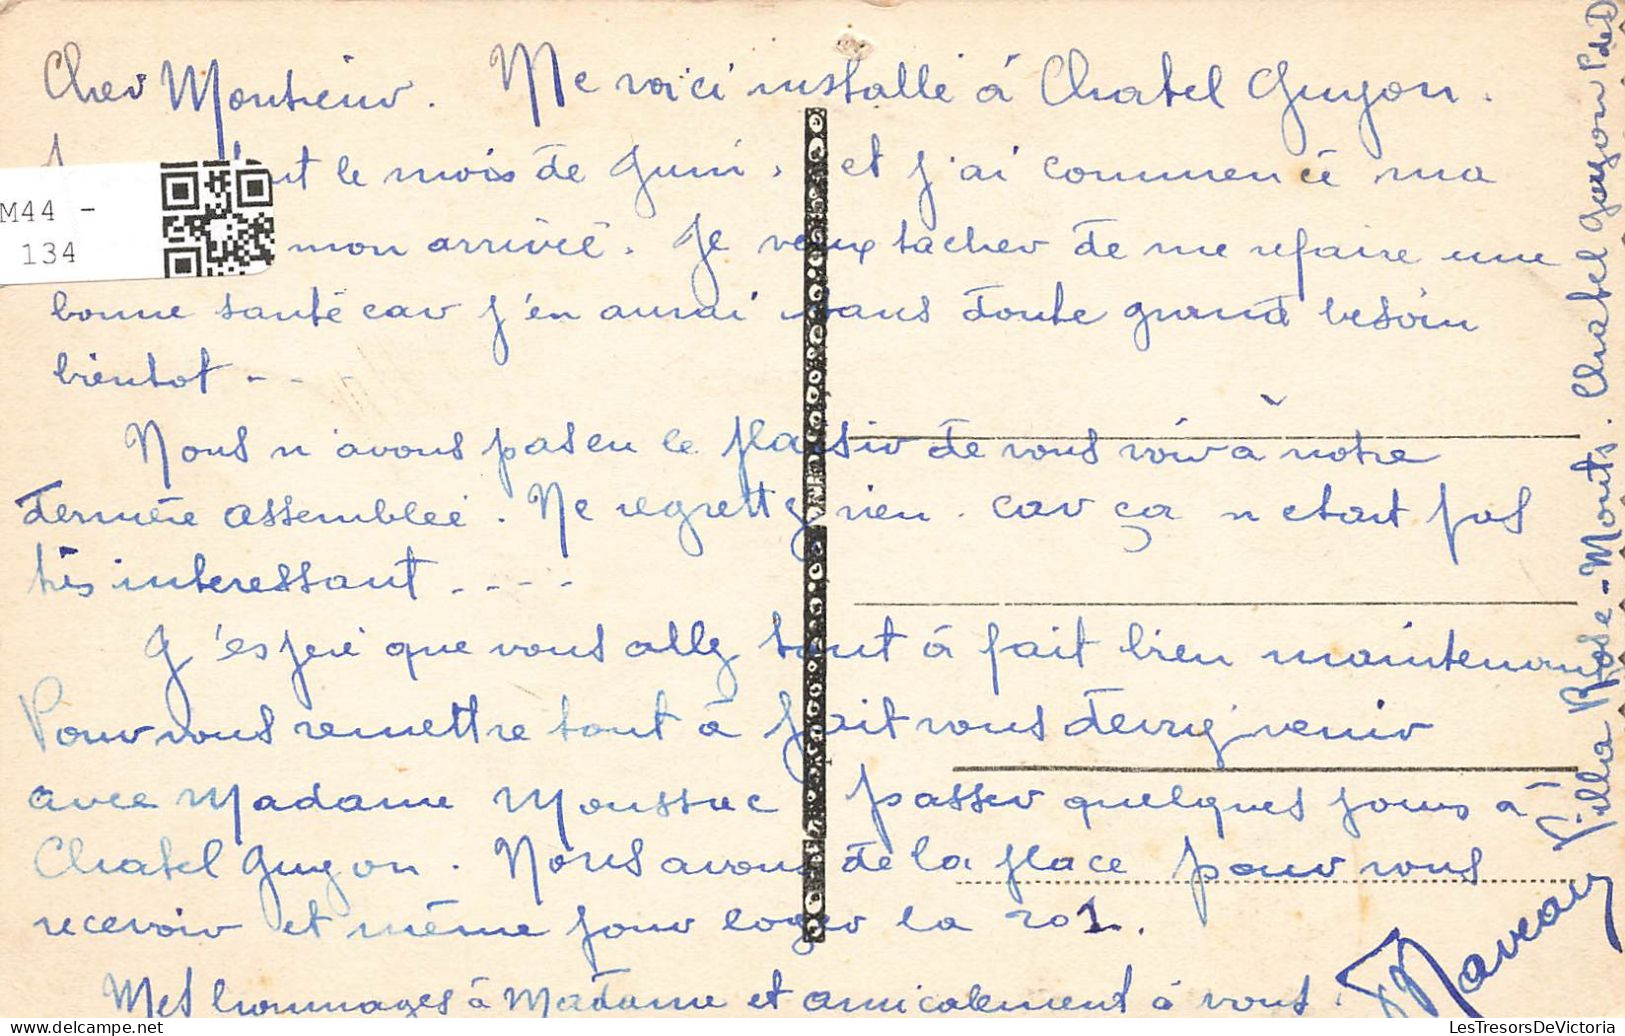 Cher Monsieur. Me voici installé à Chatel Guyon.
le mois de Juin, et j'ai commencé ma
M44 -
134
mon arrivée. Je veux tacher de me refaire une
bonne santé car j'en aurai sans doute grand besoin
bientot - - -
Nous n'avons pas eu le plaisir de vous voir à notre
dernière assemblée. Ne regrettez rien. car ça n'etait pas
très interessant - - - -
J'espere que vous allez tout à fait bien maintenant
Pour vous remettre tout à fait vous devriez venir
avec Madame Moussac passer quelques jours à
Chatel Guyon. Nous avons de la place pour vous
recevoir et même pour loger la 201.
Mes hommages à Madame et amicalement à vous.
Villa Rose-Monts. Chatel Guyon P de D
LesTresorsDeVictoria